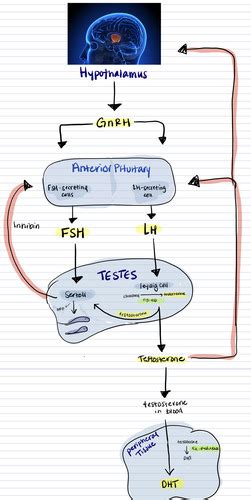 Hypothalamus
GnRH
Anterior Pituitary
FSH-secreting
cells
LH-secreting
cell
Inhibin
FSH
LH
TESTES
Sertoli
leydig cell
testosterone
Testosterone
testosterone
in blood
peripheral
Tissue
testosterone
DHT
DHT